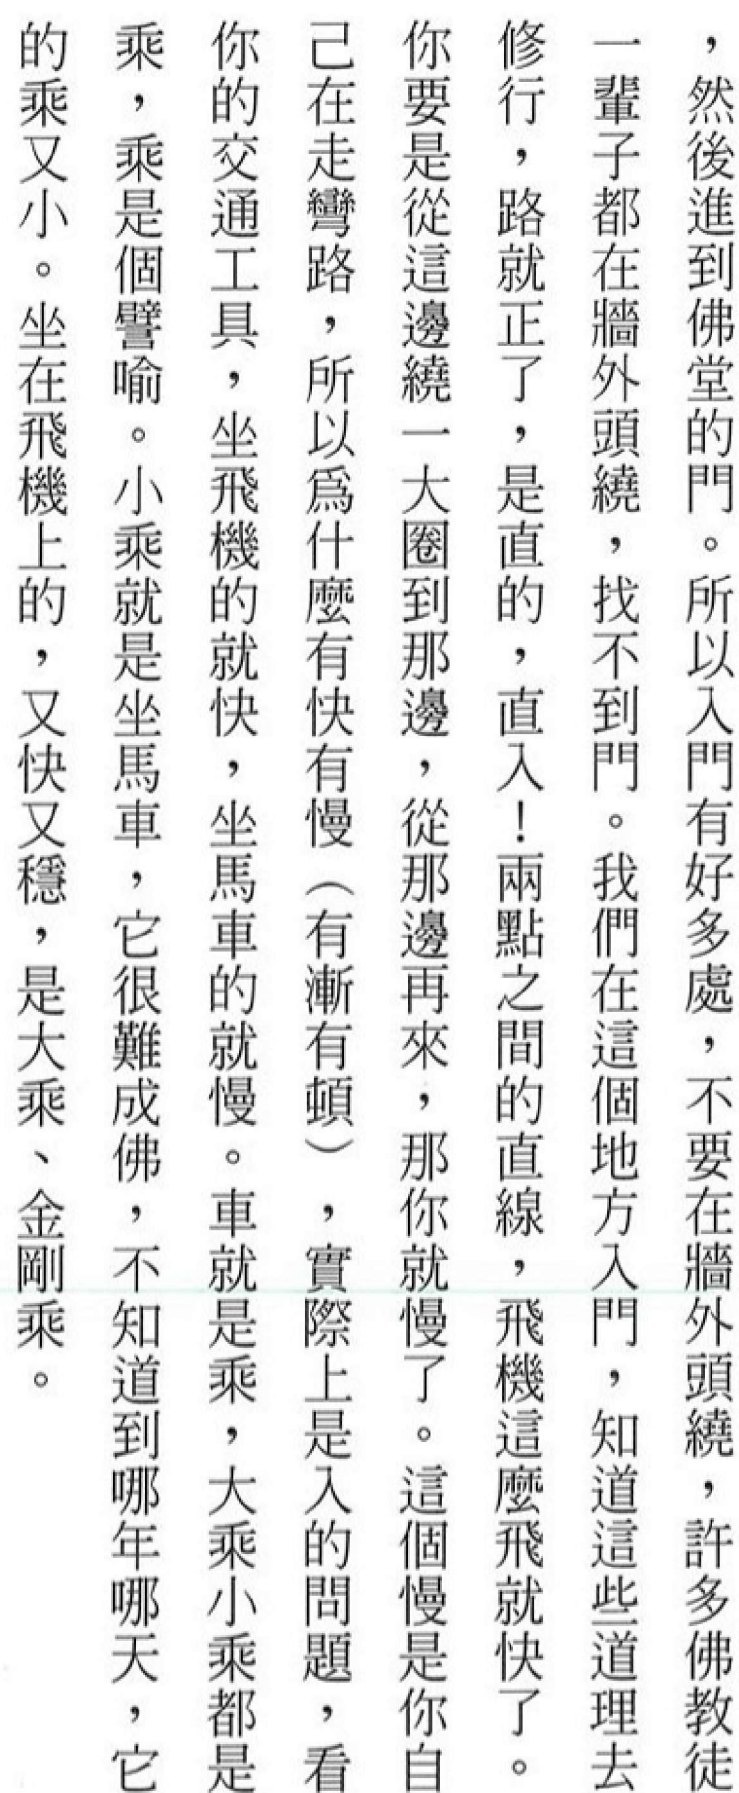 ，然後進到佛堂的門。所以入門有好多處，不要在牆外頭繞，許多佛教徒
一輩子都在牆外頭繞，找不到門。我們在這個地方入門，知道這些道理去
修行，路就正了，是直的，直入！兩點之間的直線，飛機這麼飛就快了。
你要是從這邊繞一大圈到那邊，從那邊再來，那你就慢了。這個慢是你自
己在走彎路，所以爲什麼有快有慢（有漸有頓），實際上是入的問題，看
你的交通工具，坐飛機的就快，坐馬車的就慢。車就是乘，大乘小乘都是
乘，乘是個譬喻。小乘就是坐馬車，它很難成佛，不知道到哪年哪天，它
的乘又小。坐在飛機上的，又快又穩，是大乘、金剛乘。